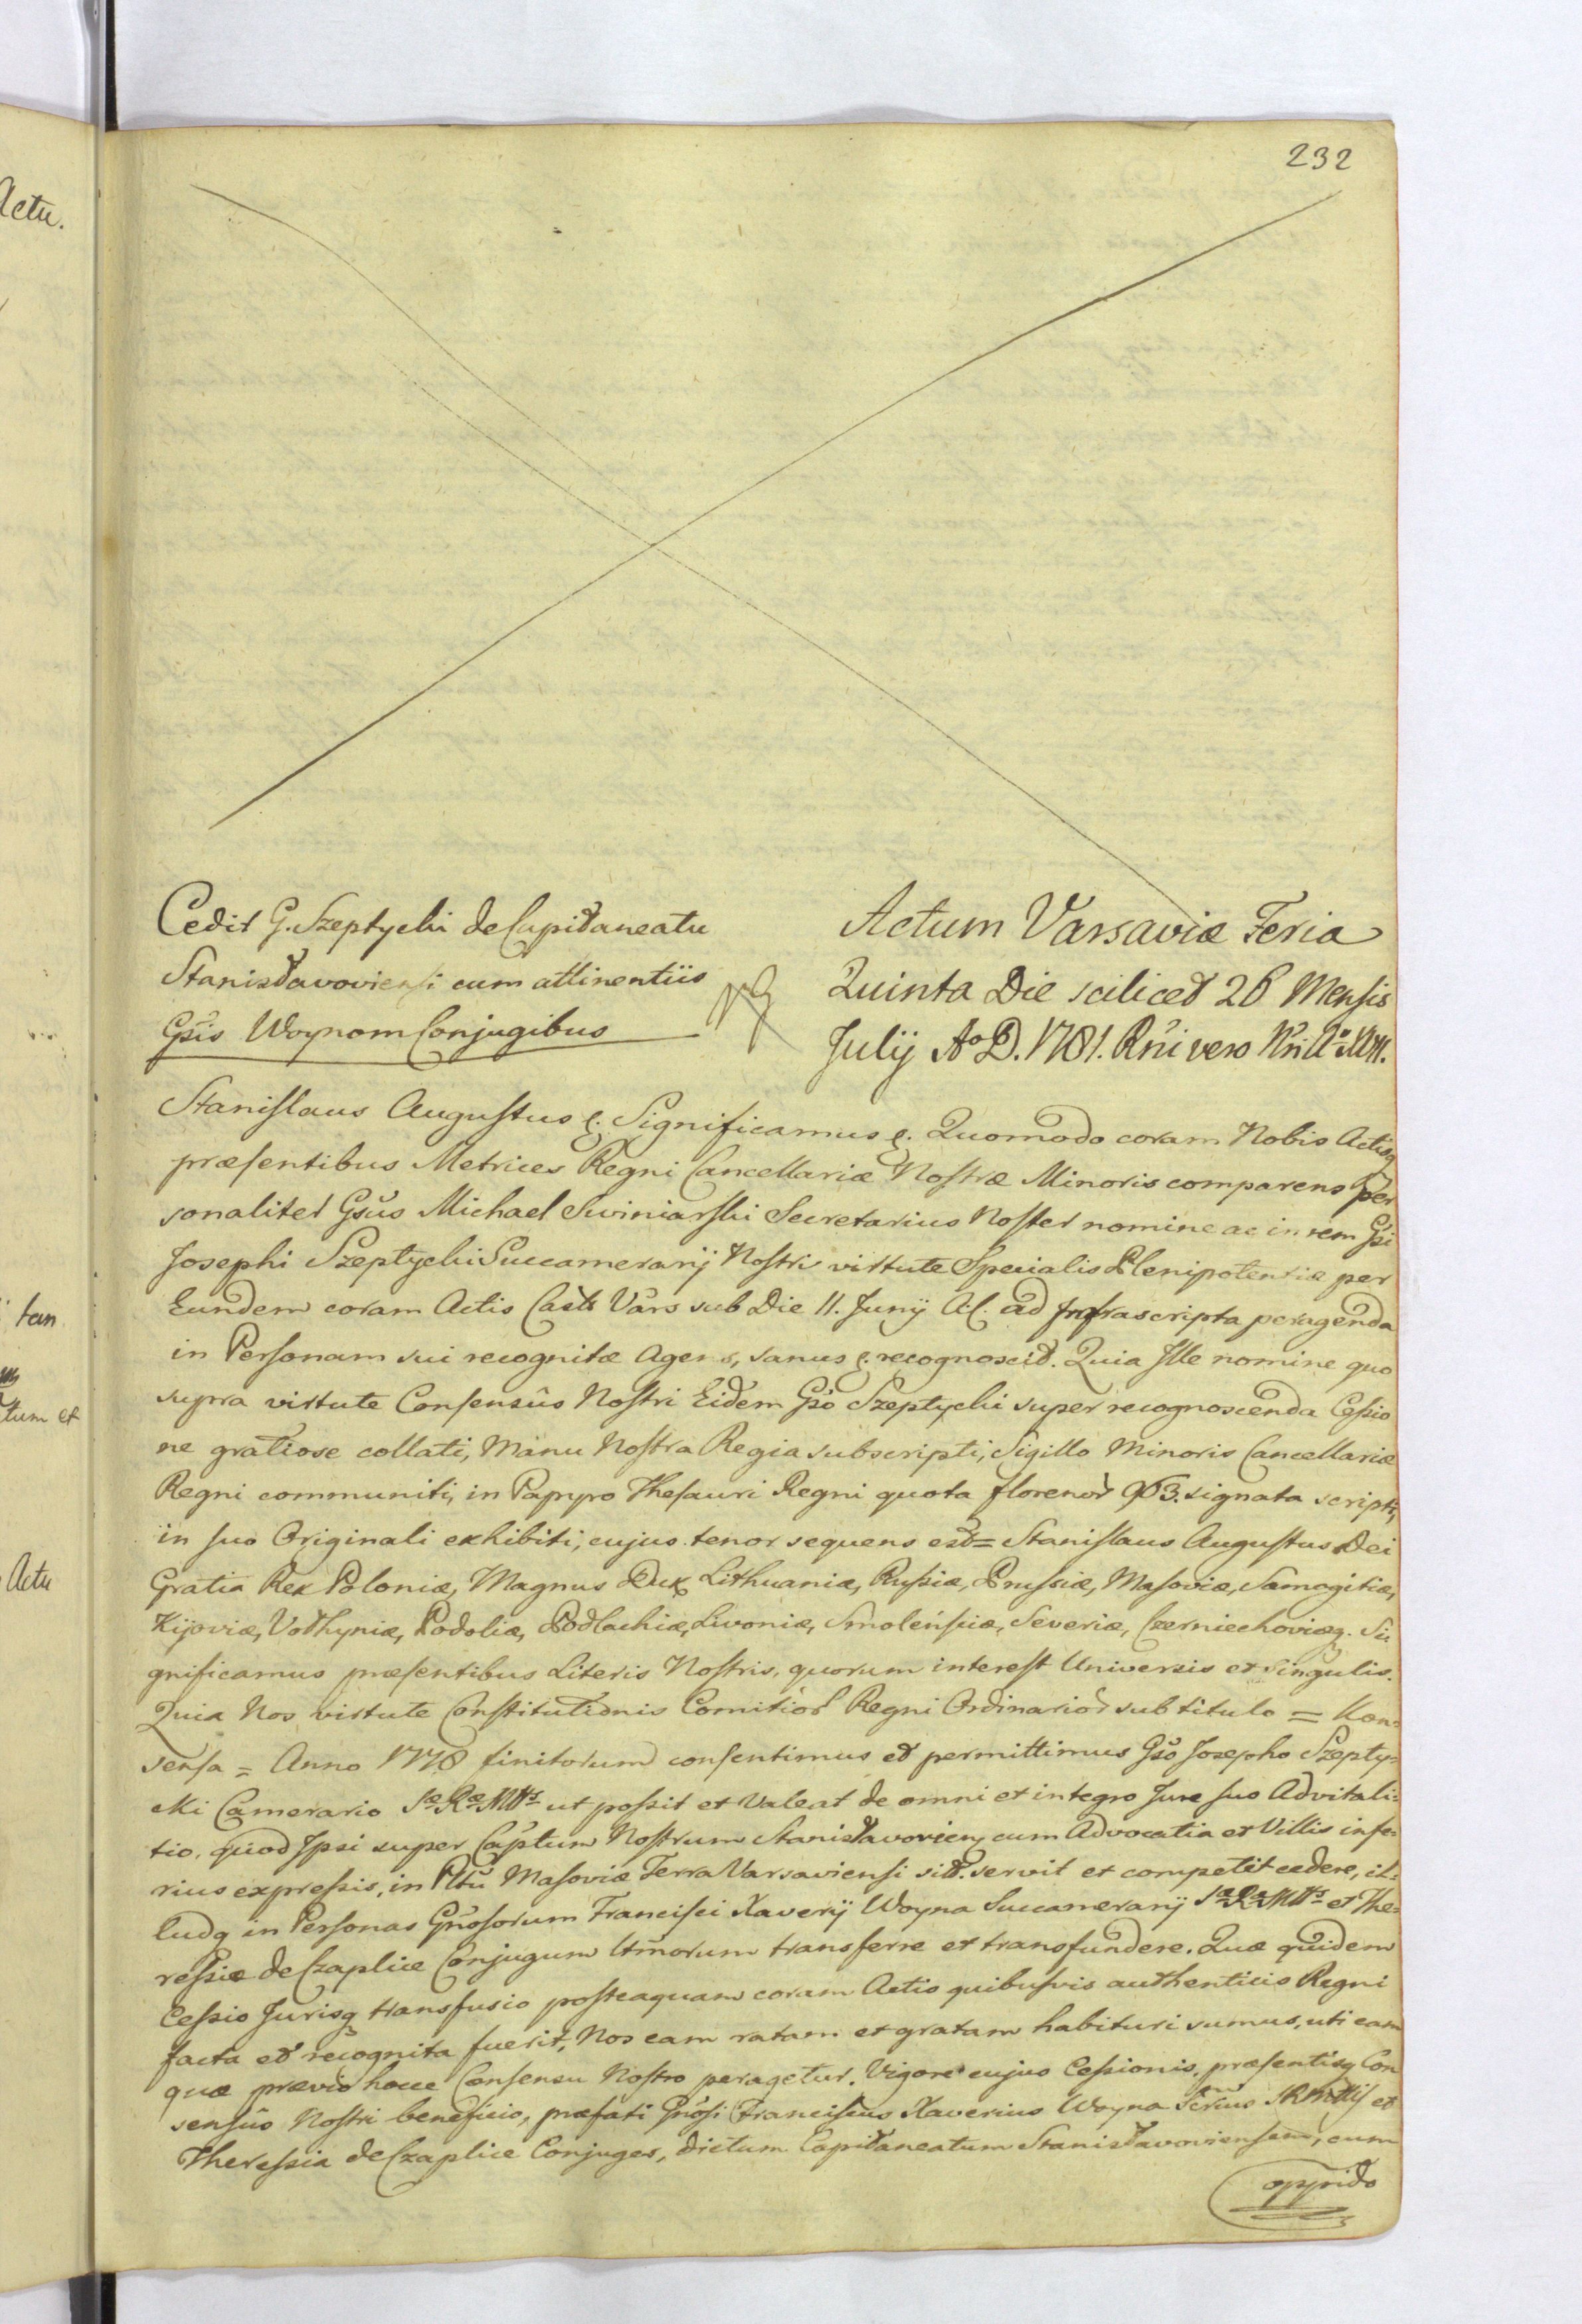 232
Actu.
tan
tum et
Actu
Cedit G. Szeptycki de Capitaneatu
Stanisławoviensi cum attinentiis
Gsis Woynom Conjugibus
Actum Varsaviæ Feria
Quinta Die scilicet 26 Mensis
Julij Aº D. 1781. Rni vero Nri Aº XVII.
Stanislaus Augustus &. Significamus &. Quomodo coram Nobis Actisq
præsentibus Metrices Regni Cancellariæ Nostræ Minoris comparens per
sonaliter Gsus Michael Swiniarski Secretarius Noster nomine ac in rem Gsi
Josephi Szeptycki Succamerarij Nostri virtute Specialis Plenipotentiæ per
Eundem coram Actis Castr Vars sub Die 11. Junij A.C. ad Infrascripta peragenda
in Personam sui recognitæ Agens, sanus &. recognoscit. Quia Ille nomine quo
supra virtute Consensûs Nostri Eidem Gso Szeptycki super recognoscenda Cessio
ne gratiose collati, Manu Nostra Regia subscripti, Sigillo Minoris Cancellariæ
Regni communiti, in Papyro Thesauri Regni quota florenor 963. signata scripti,
in suo Originali exhibiti, cujus tenor sequens est = Stanislaus Augustus Dei
Gratia Rex Poloniæ, Magnus Dux Lithuaniæ, Russiæ, Prussiæ, Masoviæ, Samogitiæ,
Kijoviæ, Volhyniæ, Podoliæ, Podlachiæ, Livoniæ, Smolensciæ, Severiæ, Czerniechoviæq. Si
gnificamus præsentibus Literis Nostris, quorum interest Universis et singulis.
Quia Nos virtute Constitutionis Comitior Regni Ordinarior sub titulo = Kon=
sensa = Anno 1778 finitorum consentimus et permittimus Gso Josepho Szepty=
cki Camerario Sæ Ræ Mttis ut possit et valeat de omni et integro Jure suo Advitali=
tio, quod Ipsi super Captum Nostrum Stanisławovien, cum Advocatia et Villis infe=
rius expressis, in Pltu Masoviæ Terra Varsaviensi sit. servit et competit cedere, il=
ludq in Personas Gnosorum Francisci Xaverij Woyna Succamerarij Sæ Ræ Mttis et The=
ressiæ de Czaplice Conjugum ltmorum transferre et transfundere. Quæ quidem
Cessio Jurisq transfusio posteaquam coram Actis quibusvis authenticis Regni
facta et recognita fuerit, Nos eam ratam et gratam habituri sumus, uti eam
quæ prævio hocce Consensu Nostro peragetur. Vigore cujus Cessionis, præsentisq Con
sensûs Nostri beneficio, præfati Gnosi Franciscus Xaverius Woyna et
Theressia de Czaplice Conjuges, dictum Capitaneatum Stanisławoviensem, cum
oppido